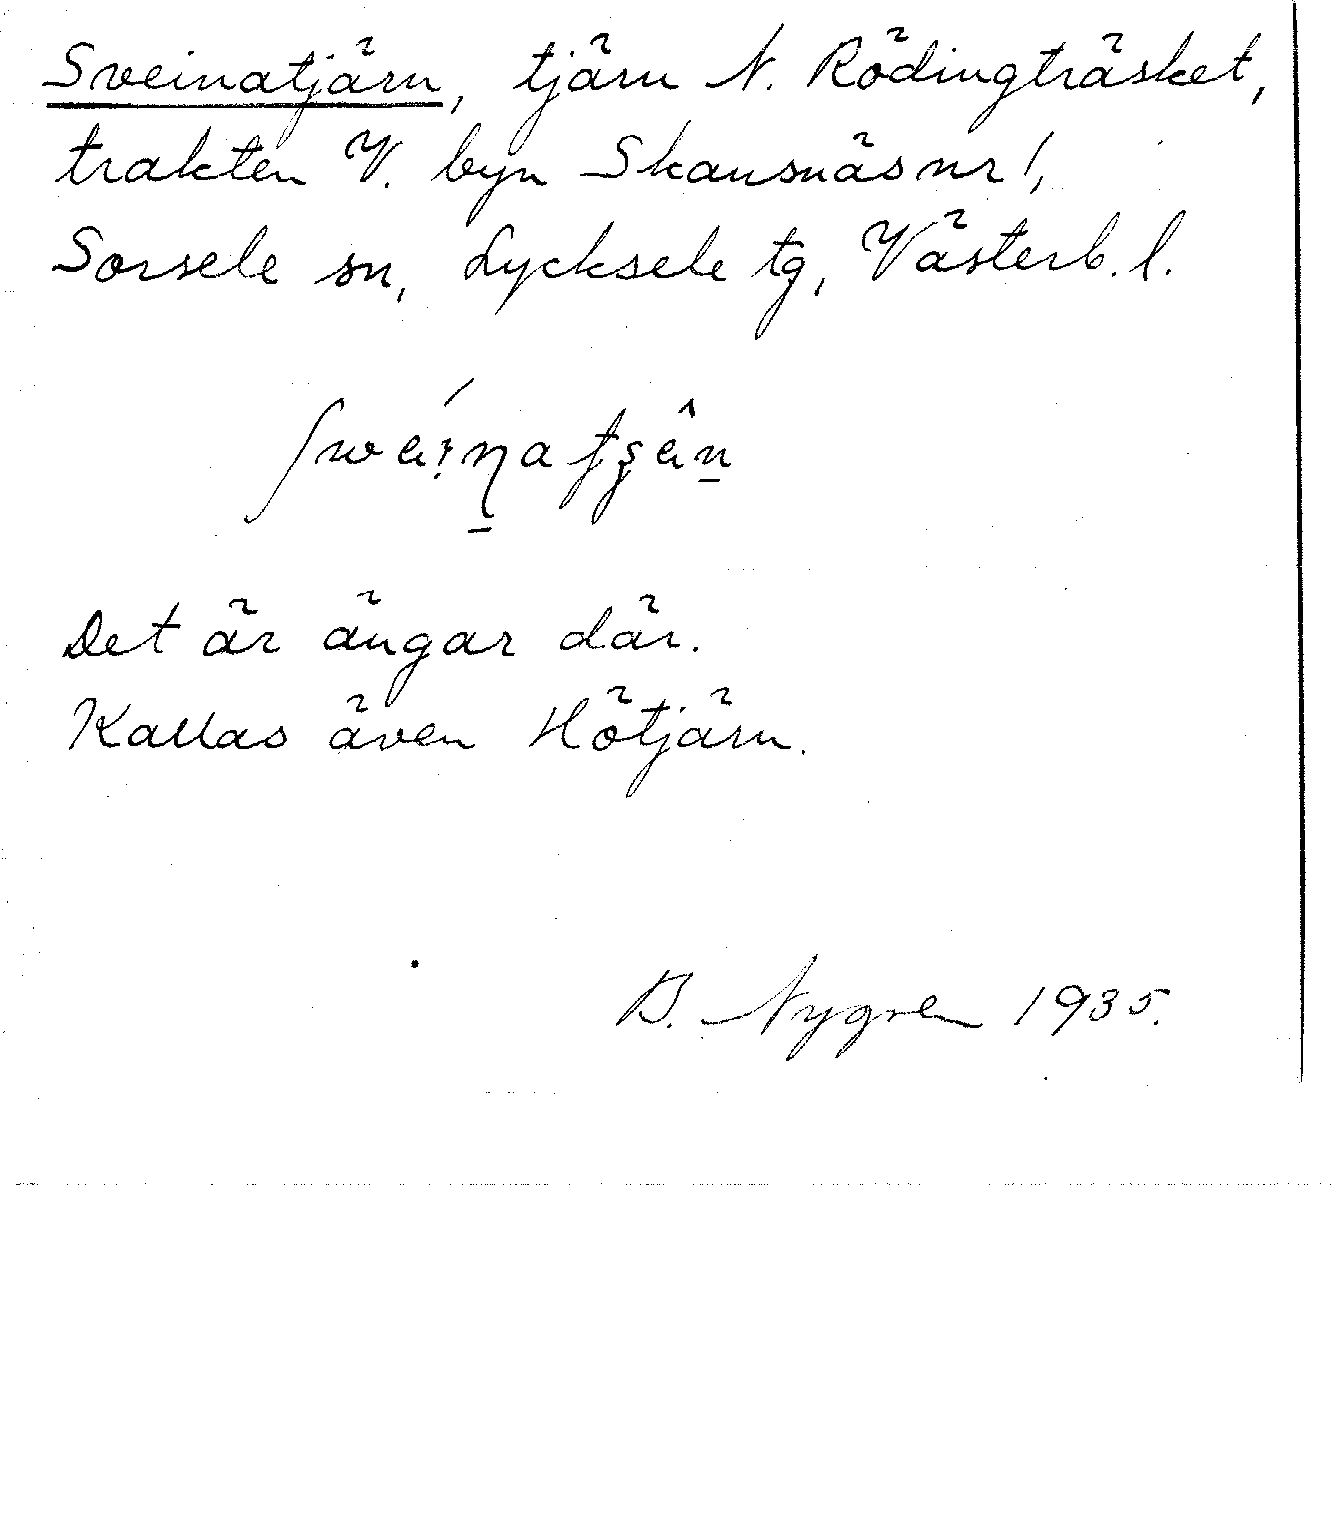 Sveinatjärn, tjärn N. Rödingträsket,
trakten V. byn Skansnäs nr 1,
Sorsele sn, Lycksele tg, Västerb. l.
Det är ängar där.
Kallas även Hötjärn.
B. Nygren 1935.